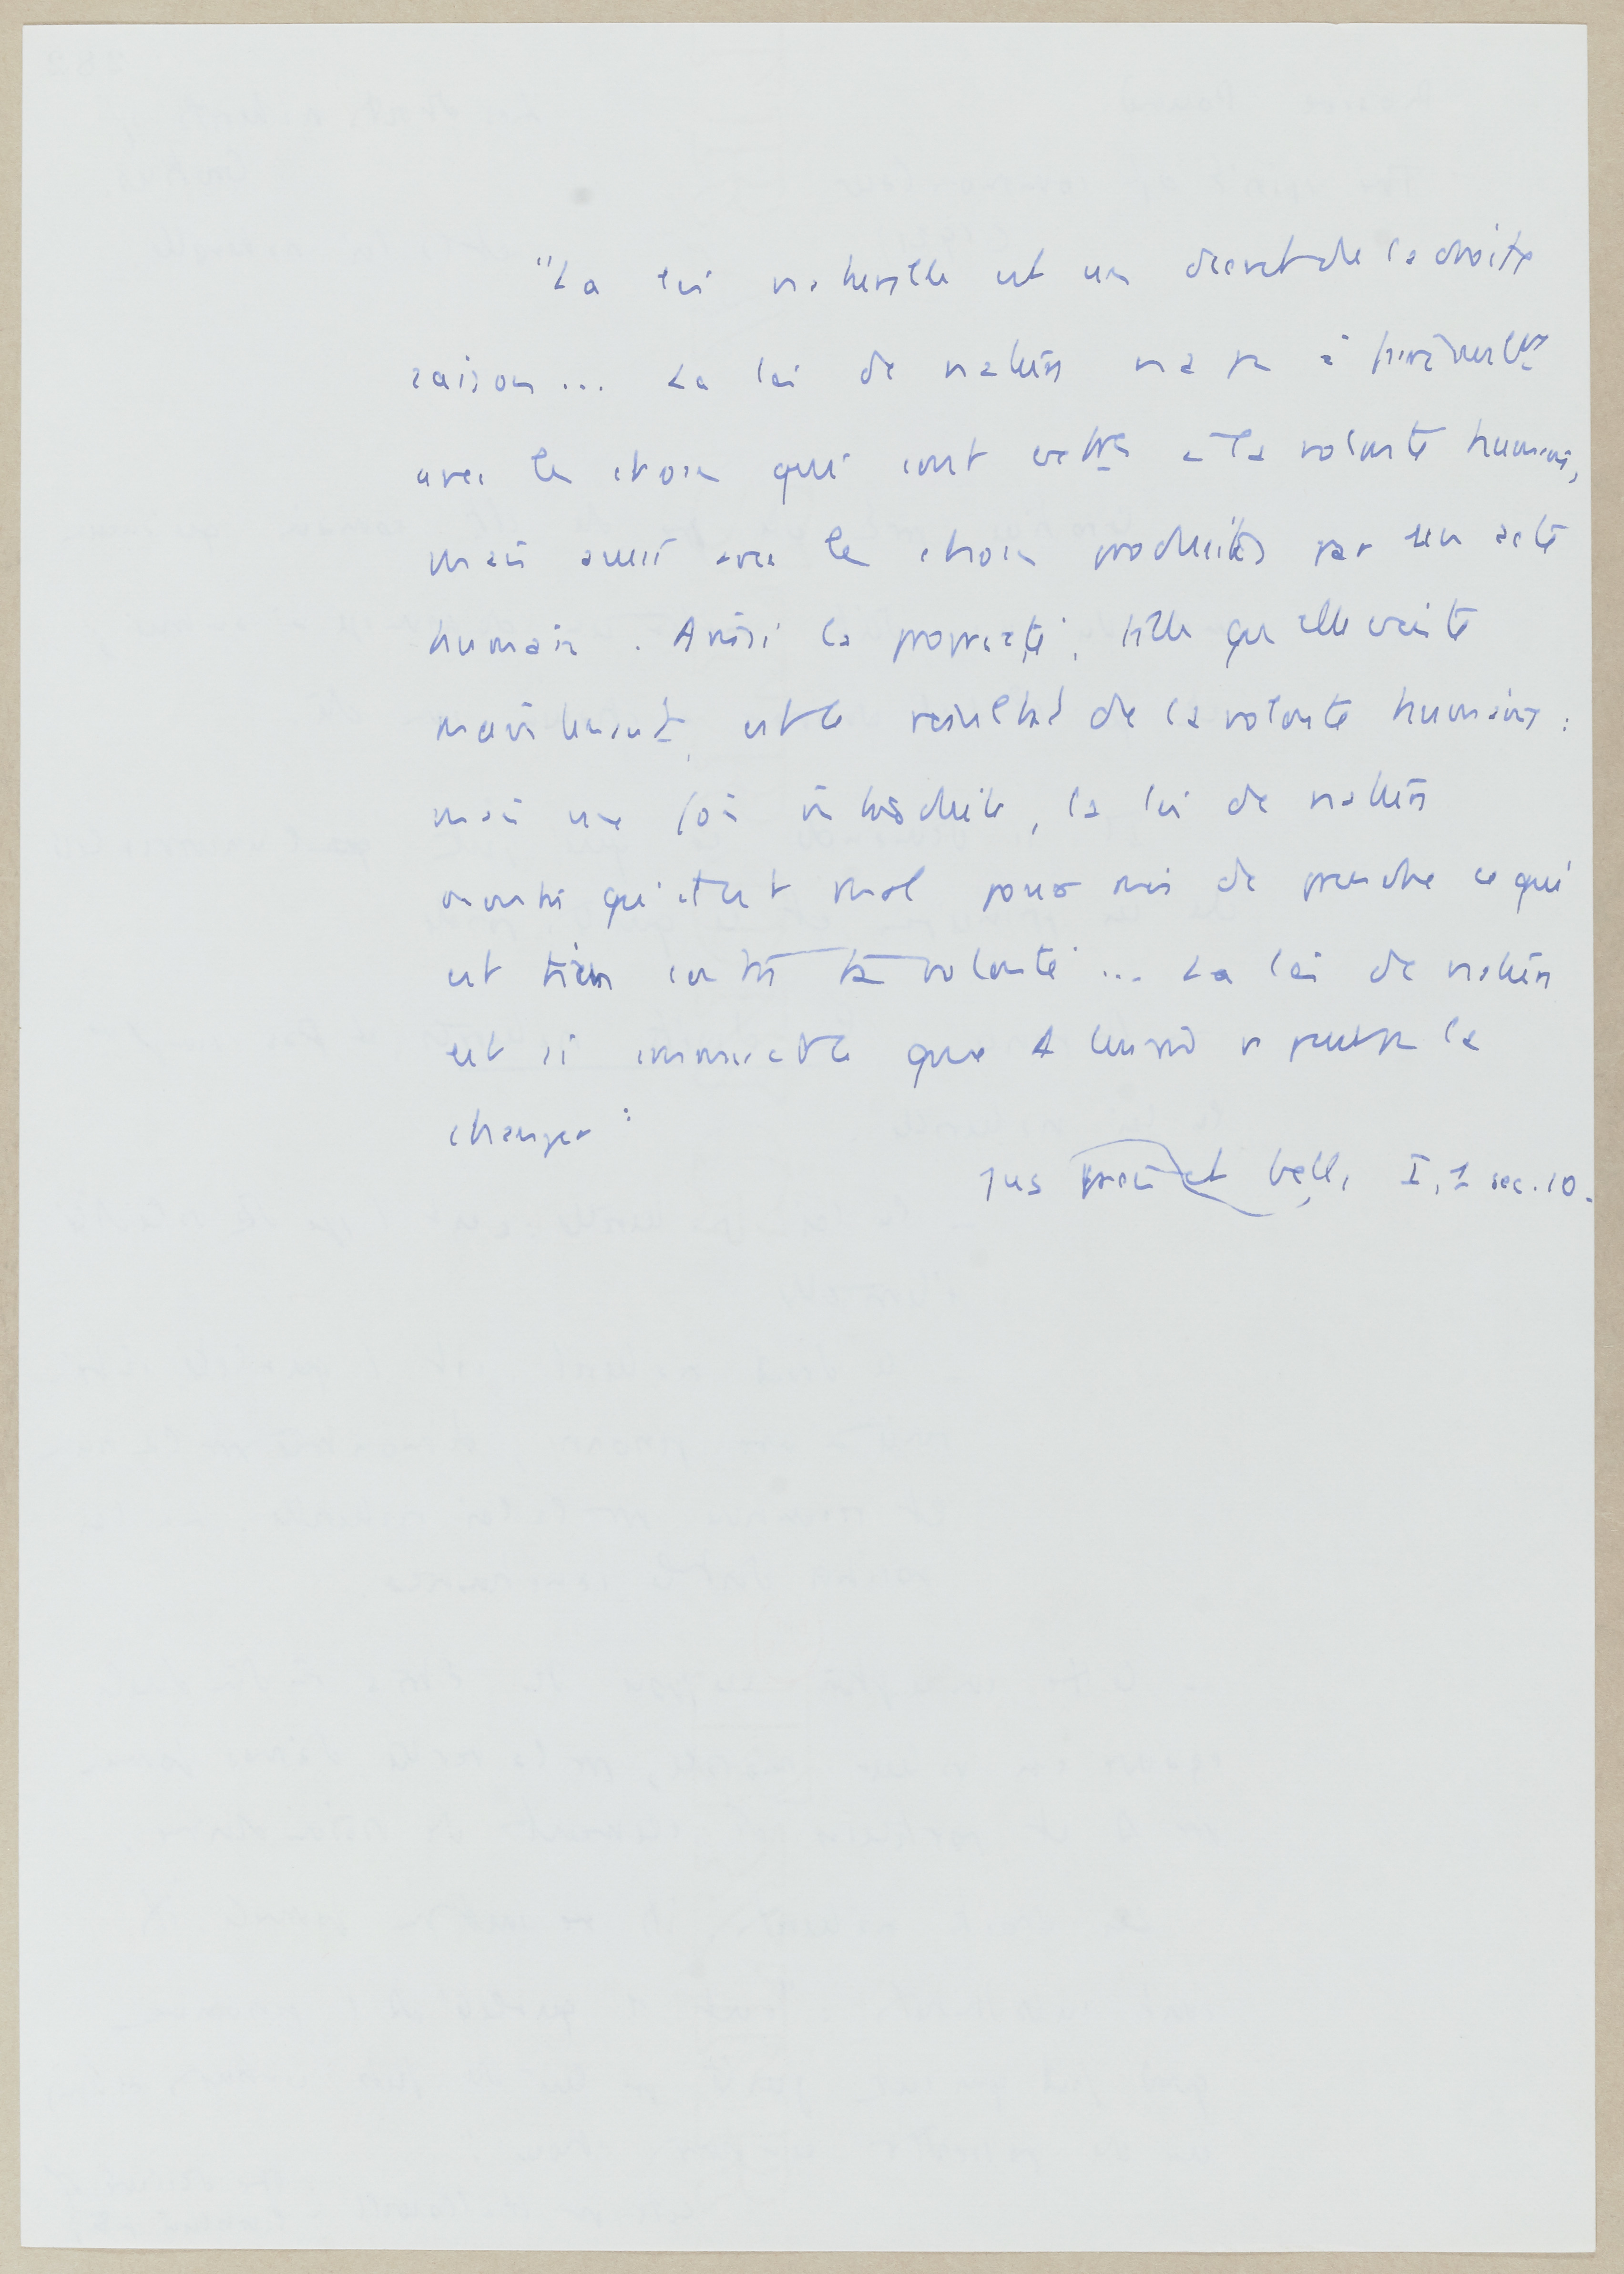 "La loi naturelle est un décret de la droite
raison... La loi de nature n'a pas à faire seult
avec les choses qui sont extres à la volonté humaine,
mais aussi avec les choses produites par un acte
humain. Ainsi la propriété, telle qu'elle existe
maintenant, est le résultat de la volonté humaine :
mais une fois introduite, la loi de nature
montre qu'il est mal pour moi de prendre ce qui
est tien contre ta volonté... La loi de nature
est si immuable que Dieu ne peut pas la
changer"
Jus et belli I, 1 sec. 10.